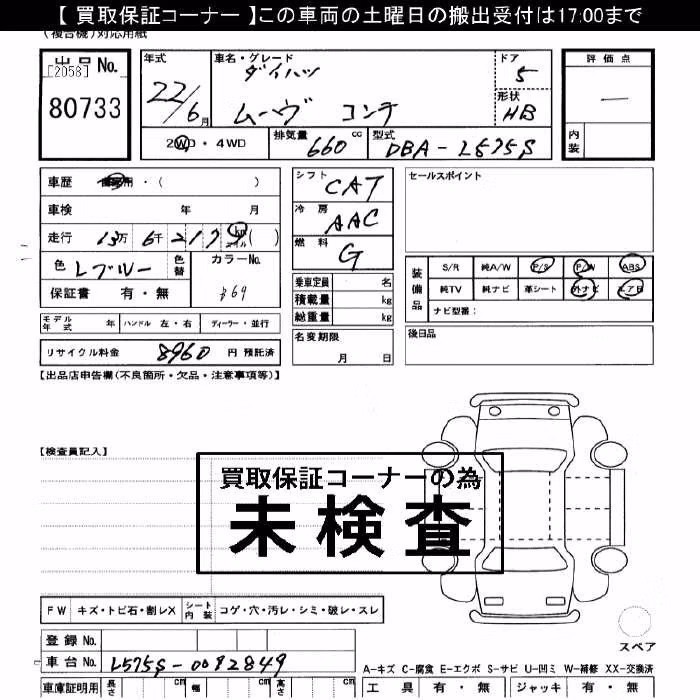 【 買取保証コーナー 】この車両の土曜日の搬出受付は17:00まで
(複合機)対応用紙
出品No.
[2058]
80733
年式
22/6月
車名・グレード
ダイハツ
ムーヴ コンテ
ドア
5
形状
HB
評価点
—
内装
2WD・4WD
排気量 660 cc
型式 DBA-L575S
車歴 ・( )
車検 年 月
走行 13万 6千 2179 km マイル ( )
色 Lブルー 色替
カラーNo.
保証書 有・無
シフト CAT
冷房 AAC
燃料 G
セールスポイント
装備品
S/R 純A/W P/S P/W ABS
純TV 純ナビ 革シート 外ナビ エアB
ナビ型番:
乗車定員 名
積載量 kg
総重量 kg
モデル年式 年 ハンドル 左・右 ディーラー・並行
名変期限
月 日
後日品
リサイクル料金 8960 円 預託済
【出品店申告欄(不良箇所・欠品・注意事項等)】
【検査員記入】
買取保証コーナーの為
未検査
FW キズ・トビ石・割レX シート内装 コゲ・穴・汚レ・シミ・破レ・スレ
スペア
登録No.
車台No. L575S-0082849
A-キズ C-腐食 E-エクボ S-サビ U-凹ミ W-補修 XX-交換済
車庫証明用 長さ cm 幅 cm 高さ cm
工具 有・無 ジャッキ 有・無